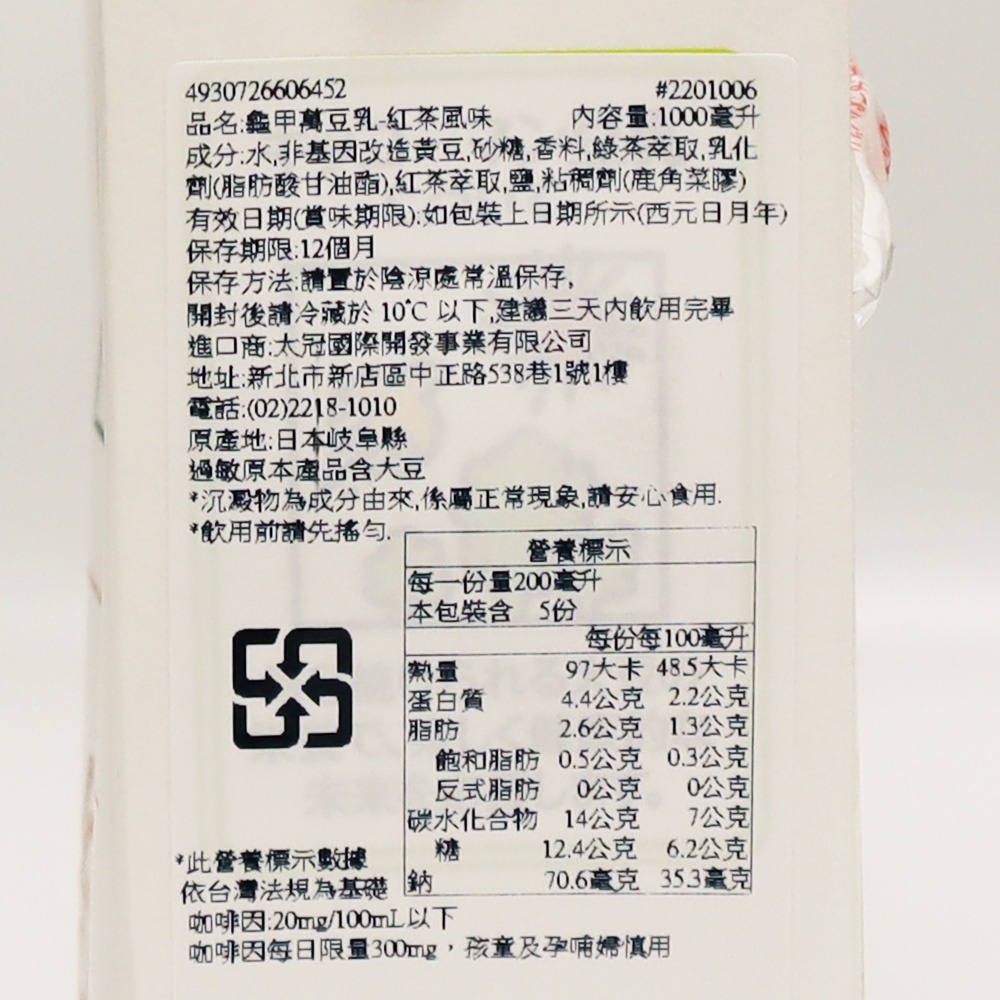 4930726606452 #2201006
品名:龜甲萬豆乳-紅茶風味 內容量:1000毫升
成分:水,非基因改造黃豆,砂糖,香料,綠茶萃取,乳化
劑(脂肪酸甘油酯),紅茶萃取,鹽,粘稠劑(鹿角菜膠)
有效日期(賞味期限):如包裝上日期所示(西元日月年)
保存期限:12個月
保存方法:請置於陰涼處常溫保存,
開封後請冷藏於 10℃ 以下,建議三天內飲用完畢
進口商:太冠國際開發事業有限公司
地址:新北市新店區中正路538巷1號1樓
電話:(02)2218-1010
原產地:日本岐阜縣
過敏原本產品含大豆
*沉澱物為成分由來,係屬正常現象,請安心食用.
*飲用前請先搖勻.
營養標示
每一份量200毫升
本包裝含 5份
每份每100毫升
熱量 97大卡 48.5大卡
蛋白質 4.4公克 2.2公克
脂肪 2.6公克 1.3公克
飽和脂肪 0.5公克 0.3公克
反式脂肪 0公克 0公克
碳水化合物 14公克 7公克
糖 12.4公克 6.2公克
鈉 70.6毫克 35.3毫克
*此營養標示數據
依台灣法規為基礎
咖啡因:20mg/100mL以下
咖啡因每日限量300mg,孩童及孕哺婦慎用